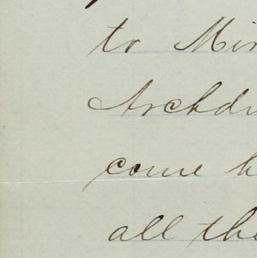 to Min
Archdu
come h
all the